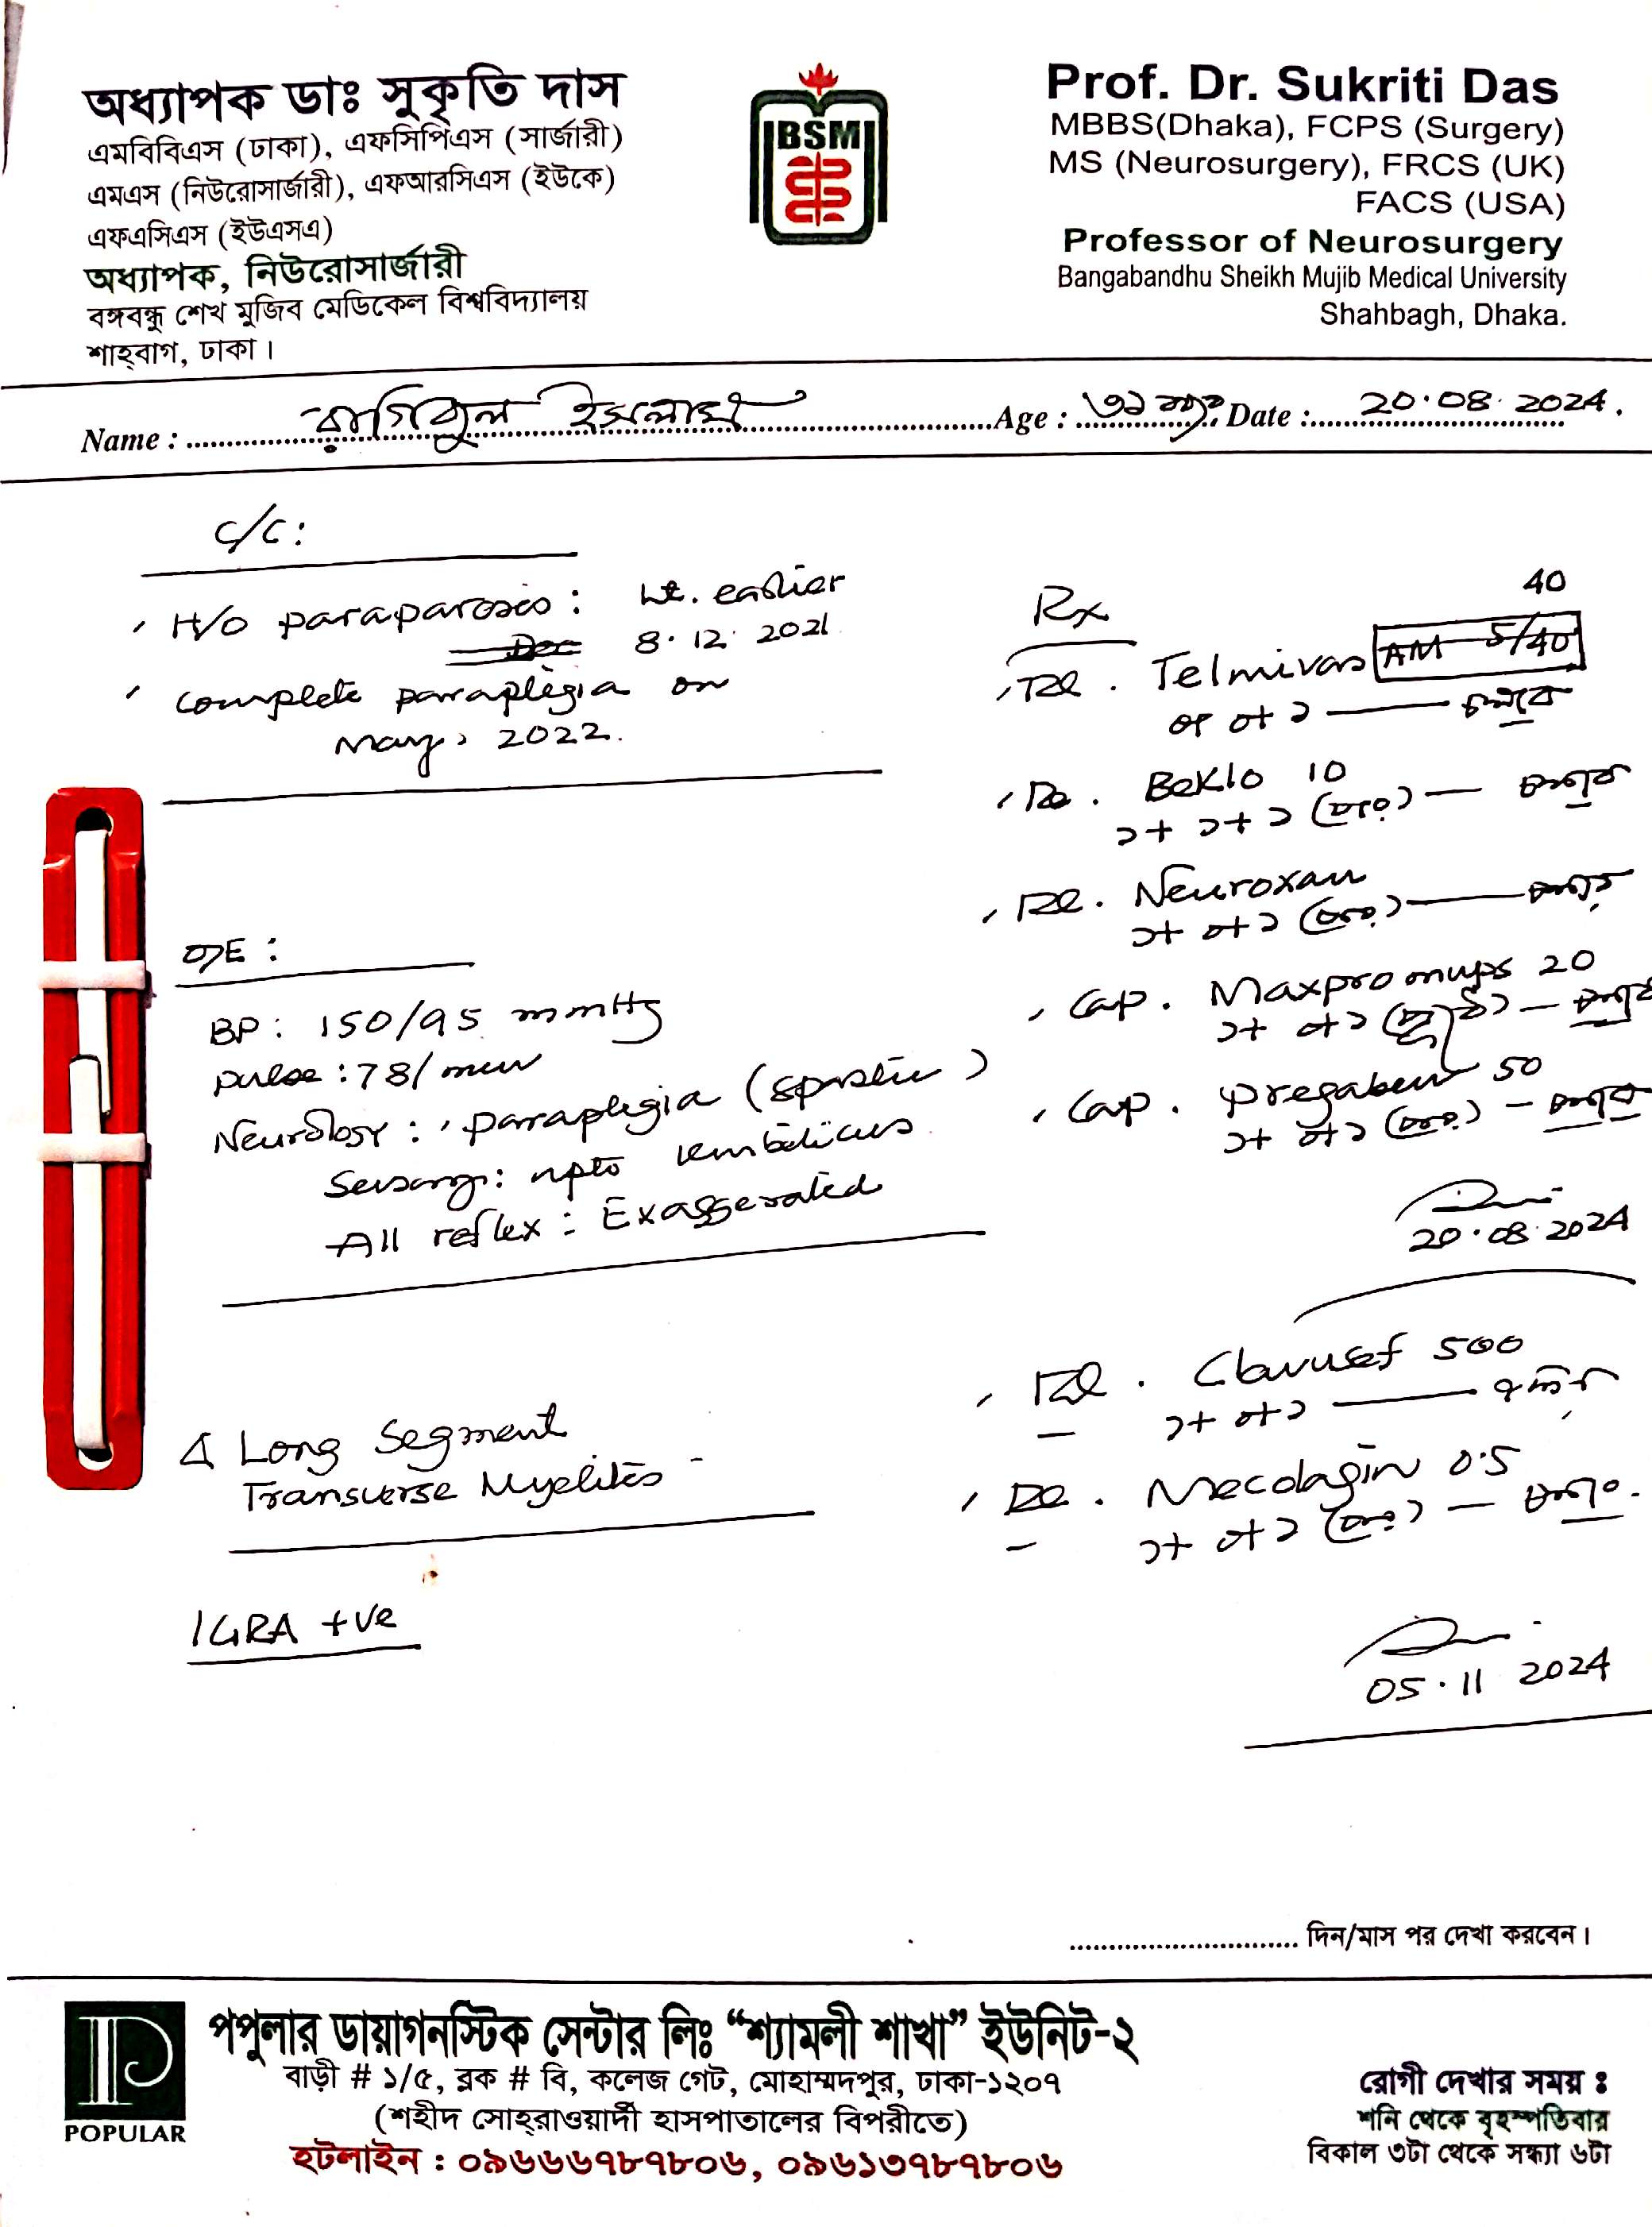 অধ্যাপক ডাঃ সুকৃতি দাস
এমবিবিএস (ঢাকা), এফসিপিএস (সার্জারী)
এমএস (নিউরোসার্জারী), এফআরসিএস (ইউকে)
এফএসিএস (ইউএসএ)
অধ্যাপক, নিউরোসার্জারী
বঙ্গবন্ধু শেখ মুজিব মেডিকেল বিশ্ববিদ্যালয়
শাহ্‌বাগ, ঢাকা।
BSM
Prof. Dr. Sukriti Das
MBBS(Dhaka), FCPS (Surgery)
MS (Neurosurgery), FRCS (UK)
FACS (USA)
Professor of Neurosurgery
Bangabandhu Sheikh Mujib Medical University
Shahbagh, Dhaka.
Name : রাগিবুল ইসলাম Age : ৩১ Date : 20.08.2024.
C/C:
H/O paraparesis : earlier
8.12.2021
complete paraplegia on
May, 2022.
O/E :
BP: 150/95 mmHg
pulse : 78/min
Neurology : paraplegia (spastic)
Sensory: upto umbilicus
All reflex : Exaggerated
Δ Long Segment
Transverse Myelitis
IGRA +ve
Rx
40
Telmivas AM 5/40
০+ ০+ ১ — চলবে
Beklo 10
১+ ১+ ১ — চলবে
Neuroxan
১+ ০+ ১ — চলবে
Cap. Maxpro mups 20
১+ ০+ ১ — চলবে
Cap. Pregaben 50
১+ ০+ ১ — চলবে
20.08.2024
Clavusef 500
১+ ০+ ১ —
Mecolagin 0.5
১+ ০+ ১ —
05.11 2024
দিন/মাস পর দেখা করবেন।
POPULAR
পপুলার ডায়াগনস্টিক সেন্টার লিঃ “শ্যামলী শাখা” ইউনিট-২
বাড়ী # ১/৫, ব্লক # বি, কলেজ গেট, মোহাম্মদপুর, ঢাকা-১২০৭
(শহীদ সোহ্‌রাওয়ার্দী হাসপাতালের বিপরীতে)
হটলাইন : ০৯৬৬৬৭৮৭৮০৬, ০৯৬১৩৭৮৭৮০৬
রোগী দেখার সময় ঃ
শনি থেকে বৃহস্পতিবার
বিকাল ৩টা থেকে সন্ধ্যা ৬টা